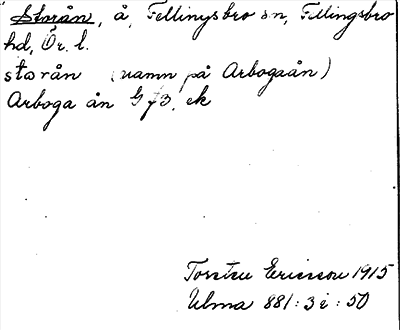 Storån, å, Fellingsbro sn, Fellingsbro
hd, Ör. l.
storån (namn på Arbogaån)
Arboga ån G 73, ek
Torsten Ericsson 1915
Ulma 881:3 i : 50